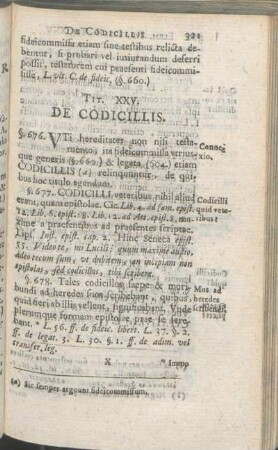 DE CODICILLIS 321
fideicommissa etiam sine testibus relicta de-
bentur, si probari vel iusiurandum deferri
possit, testatorem cui praesenti fideicommi-
sisse, L. ult. C. de fideic. (§. 660.)
TIT. XXV.
DE CODICILLIS.
§. 676. UTi hereditates non nisi testa- Connec-
mentos, ita fideicommissa utrius- xio,
que generis (§. 660.) & legata (604.) etiam
CODICILLIS (a) relinquuntur, de qui-
bus hoc titulo agendum.
§. 677. CODICILLI veteribus nihil aliud Codicilli
erant, quam epistolae. Cic. Lib. 4. ad fam. epist. quid vete-
12. Lib. 6. epist. 8. Lib. 12. ad Att. epist. 8. ribus?
a praesentibus ad praesentes scriptae.
Inst. epist. cap. 2. Hinc Seneca epist.
55. Video te, mi Lucili: quum maxime audio,
adeo tecum sum, ut dubitem, an incipiam non
epistolas, sed codicillos, tibi scribere.
§. 678. Tales codicillos saepe & mori- Mos ad
bundi ad heredes suos scribebant, quibus, heredes
quid fieri abillis vellent, significabant. Unde scribendi
plerumque formam epistolae prae se fere-
bant. * L. 56. ff. de fideic. libert. L. 37. §. 2.
ff. de legat. 3. L. 30. §. 1. ff. de adim. vel
transfer. leg.
X * Immo
(a) Sic semper arguunt fideicommissum.